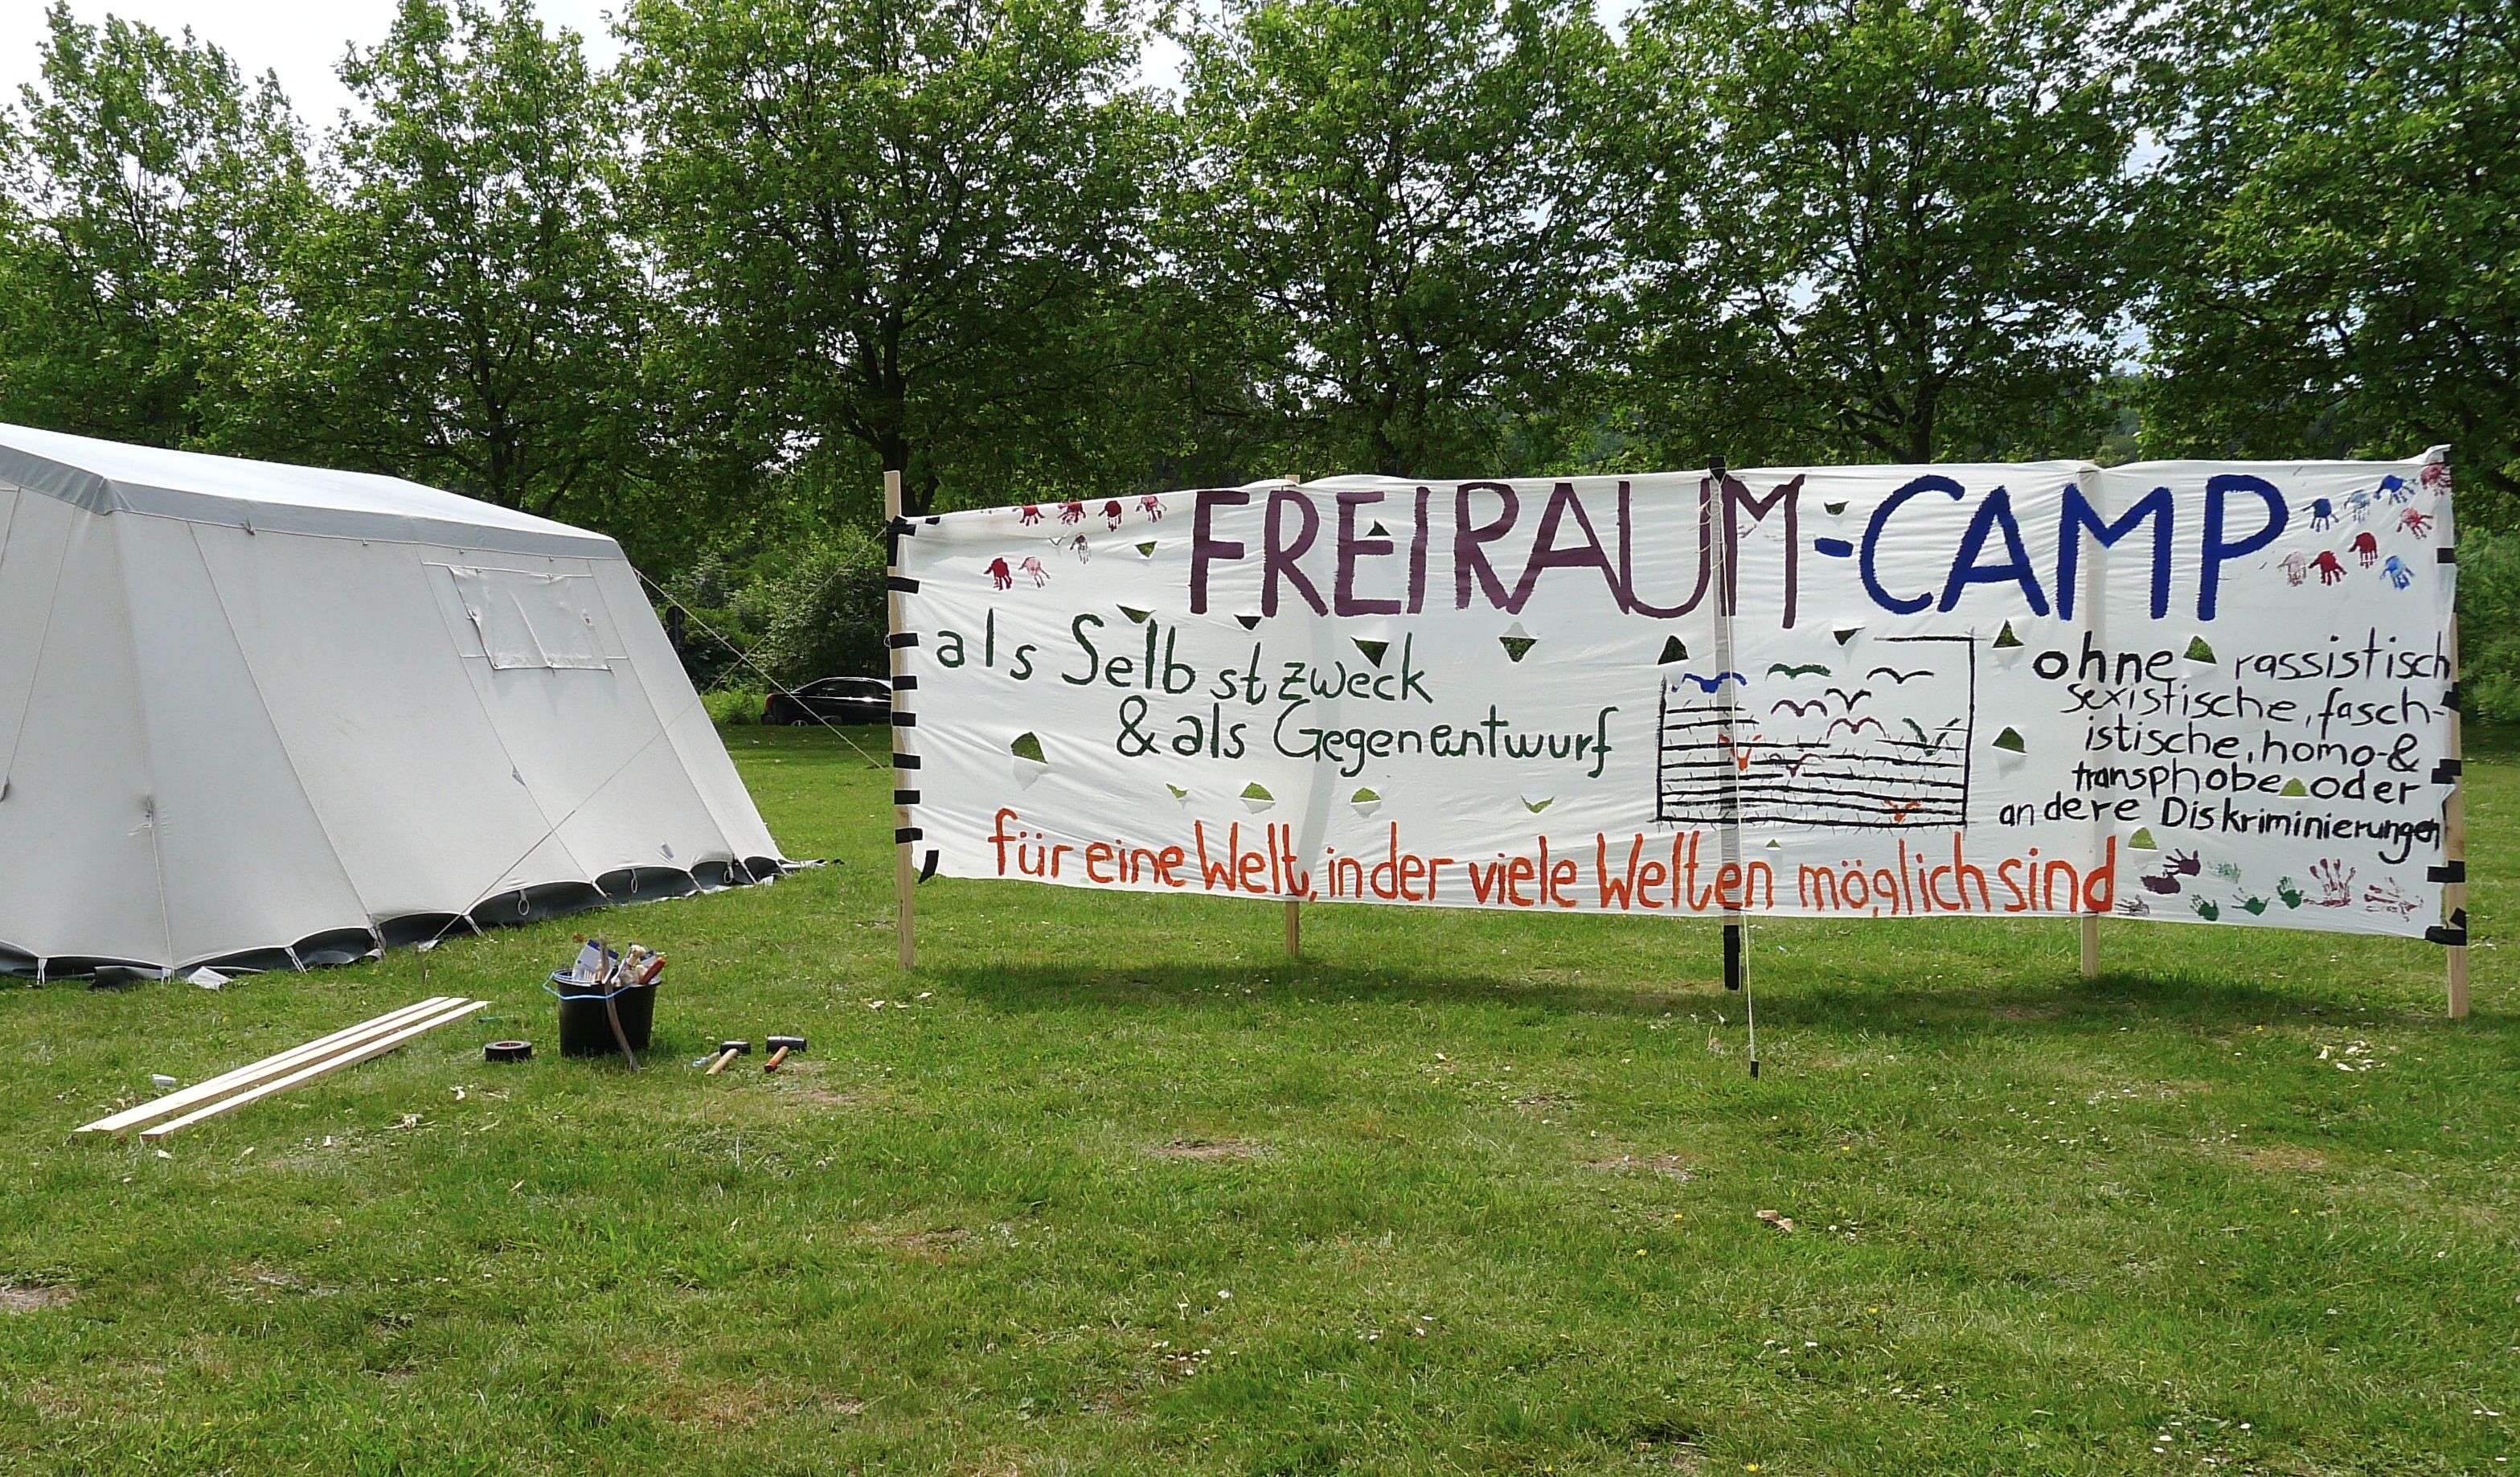 FREIRAUM-CAMP
als Selbstzweck
& als Gegenentwurf
ohne rassistisch
sexistische, fasch-
istische, homo-&
transphobe oder
andere Diskriminierungen
für eine Welt, in der viele Welten möglich sind